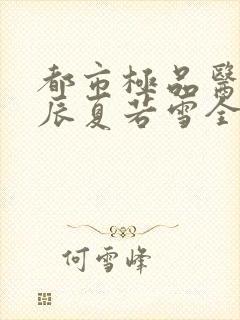 都市極品醫
辰夏若雪全
何雪峰